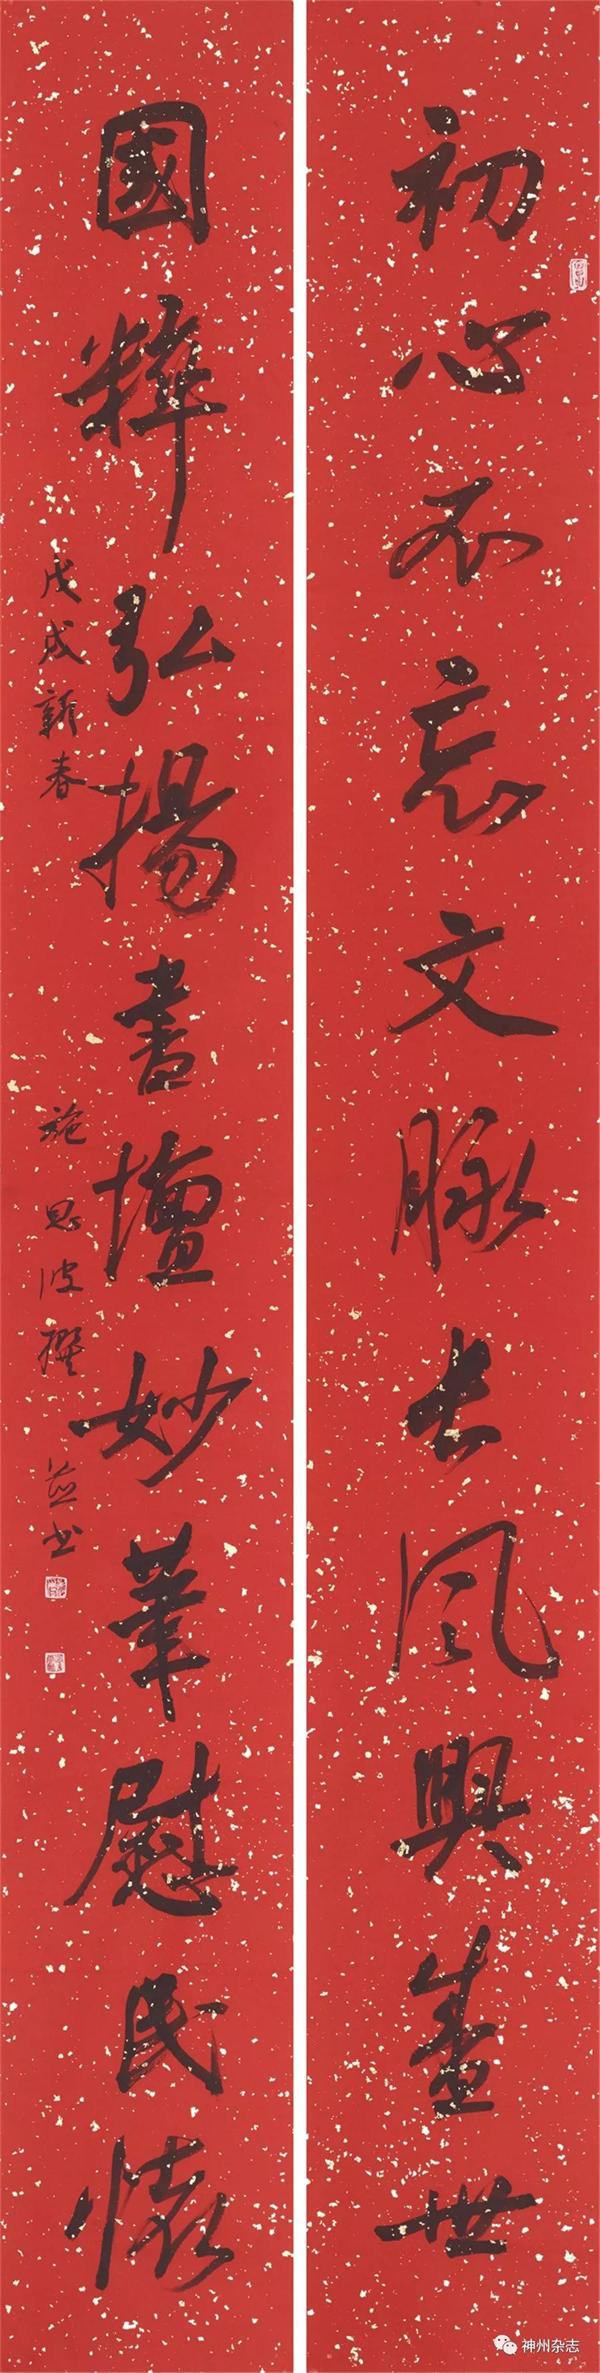 初心不忘文脉長風興盛世
國粹弘揚書壇妙筆慰民懷
戊戌新春 施恩波撰並书
神州杂志